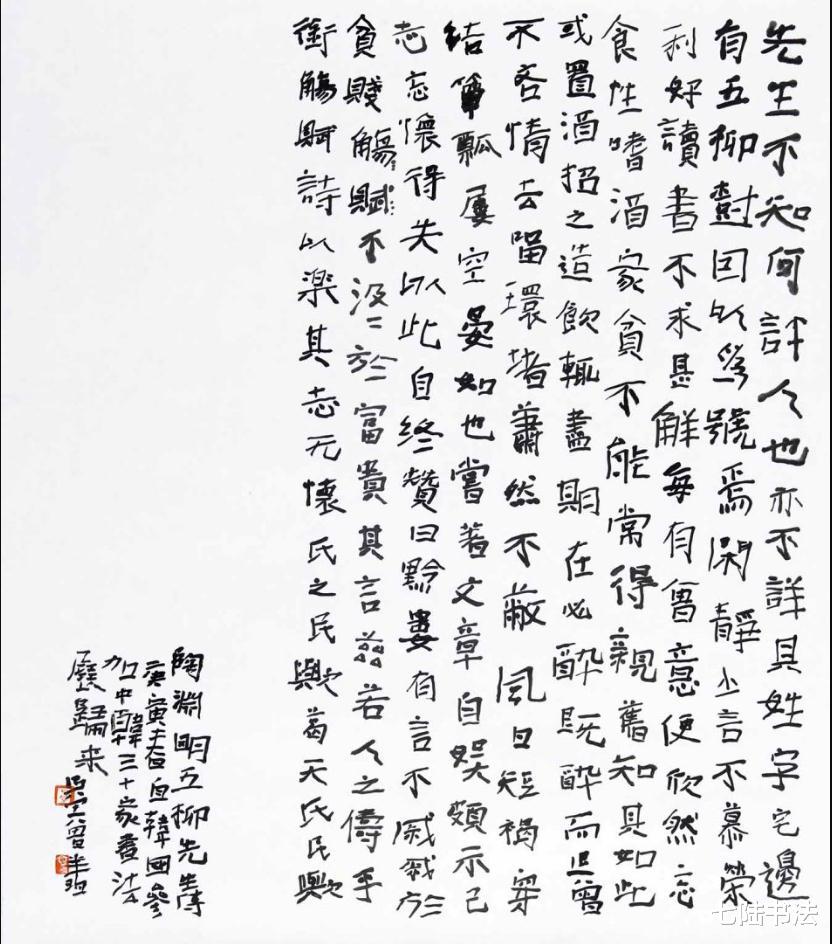 先生不知何許人也亦不詳其姓字宅邊
有五柳樹因以爲號焉閑靜少言不慕榮
利好讀書不求甚解每有會意便欣然忘
食性嗜酒家貧不能常得親舊知其如此
或置酒招之造飲輒盡期在必醉既醉而退曾
不吝情去留環堵蕭然不蔽風日短褐穿
結簞瓢屢空晏如也嘗著文章自娱頗示己
志忘懷得失以此自終贊曰黔婁有言不戚戚於
貧賤觴賦不汲汲於富貴其言兹若人之儔乎
銜觴賦詩以樂其志无懷氏之民歟葛天氏民歟
陶淵明五柳先生傳
庚寅春自韓國參
加中韓三十家書法
展歸來
七陆书法